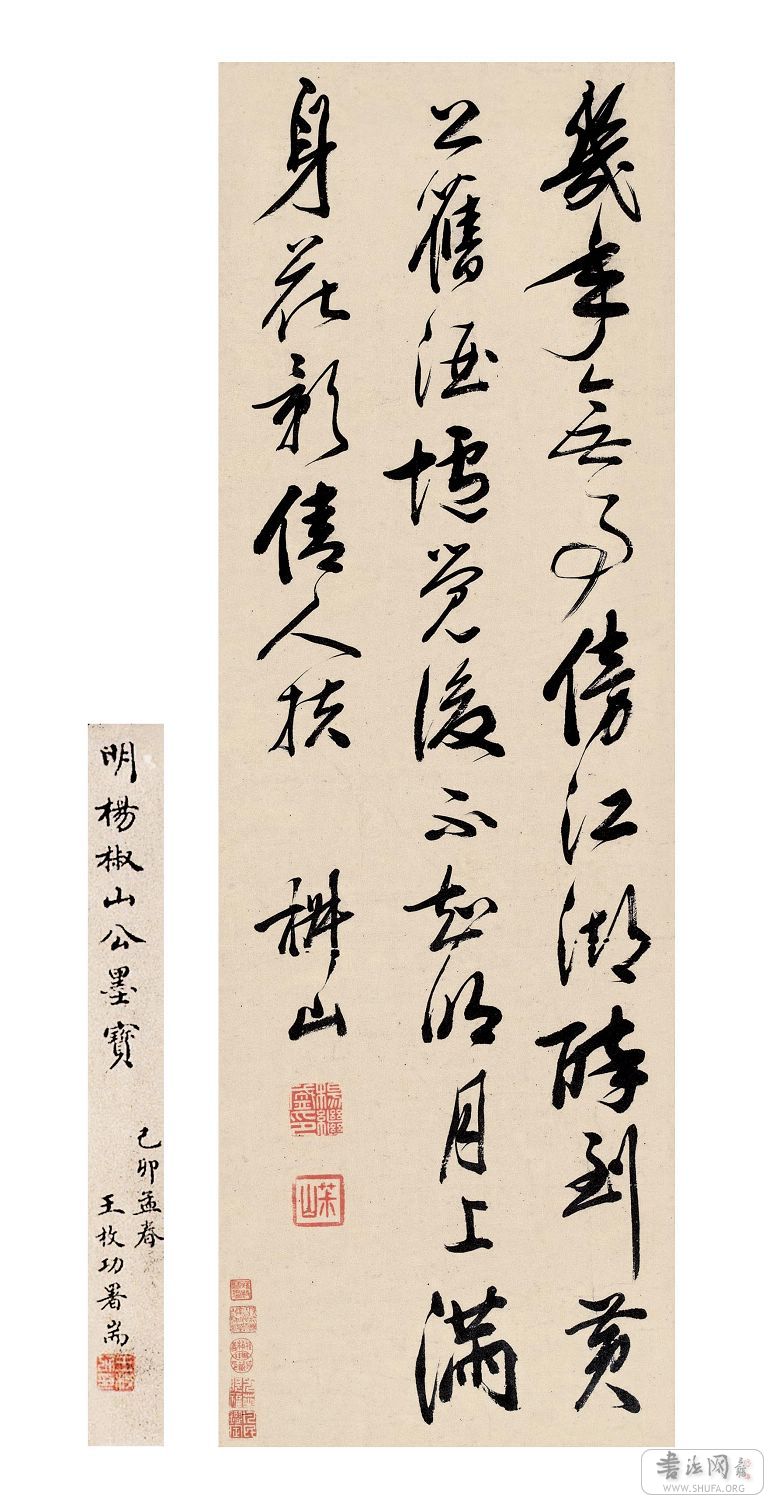 幾年無事傍江湖醉到黄
公舊酒壚覺後不知明月上滿
身花影倩人扶
椒山
楊繼盛印
茮山
明楊椒山公墨寶
己卯孟春
王枚功署耑
書法网
WWW.SHUFA.ORG